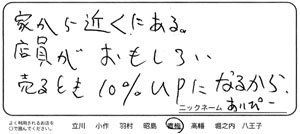 家から近くにある。
店員がおもしろい
売るとき10%UPになるから。
ニックネーム あいぴー
よく利用されるお店を
○で囲んでください。
立川 小作 羽村 昭島 豊福 高幡 堀之内 八王子